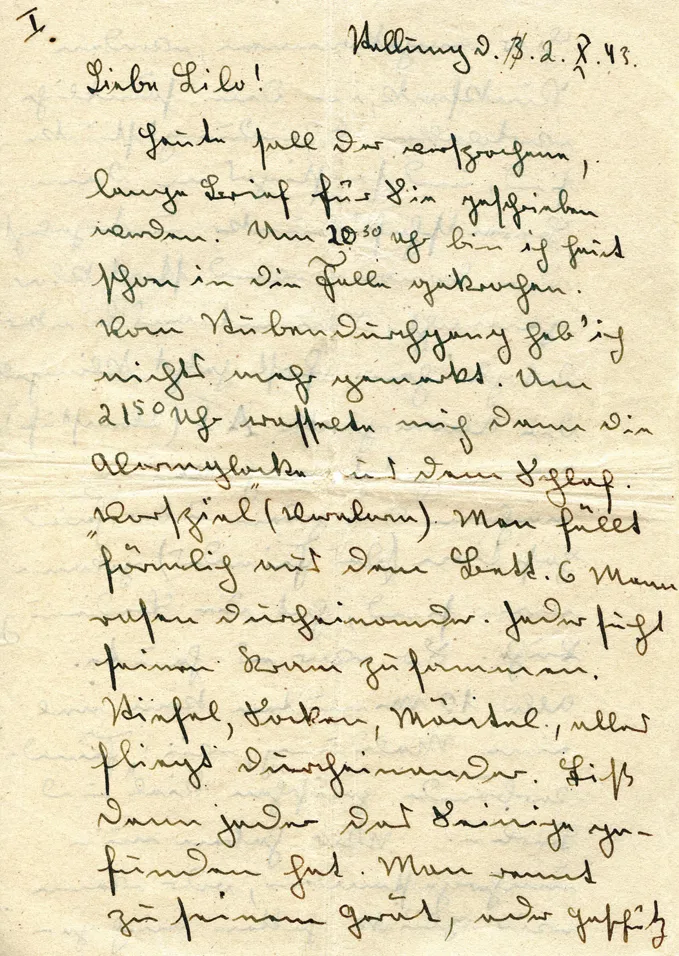 I.
Stellung d. 3. 2. X. 43.
Liebe Lilo!
Heute soll der versprochene,
lange Brief für Sie geschrieben
werden. Um 20³⁰ Uhr bin ich heut
schon in die Falle gekrochen.
Vom Stubendurchgang hab' ich
nichts mehr gemerkt. Um
21⁵⁰ Uhr rasselte mich dann die
Alarmglocke aus dem Schlaf.
"Vorspiel" (Voralarm) Man fällt
förmlich aus dem Bett. 6 Mann
rasen durcheinander. Jeder sucht
seinen Kram zusammen.
Stiefel, Socken, Mäntel, alles
fliegt durcheinander. Bis
dann jeder das Seinige ge-
funden hat. Man rennt
zu seinem Gerät, oder Geschütz